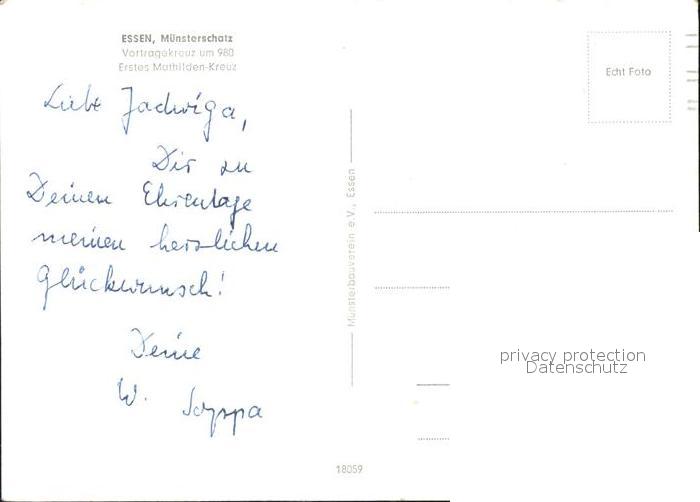 ESSEN, Münsterschatz
Vortragekreuz um 980
Erstes Mathilden-Kreuz
Echt Foto
Liebe Jadwiga,
Dir zu
Deinem Ehrentage
meinen herzlichen
Glückwunsch!
Deine
W.
Münsterbauverein e.V., Essen
privacy protection
Datenschutz
18059